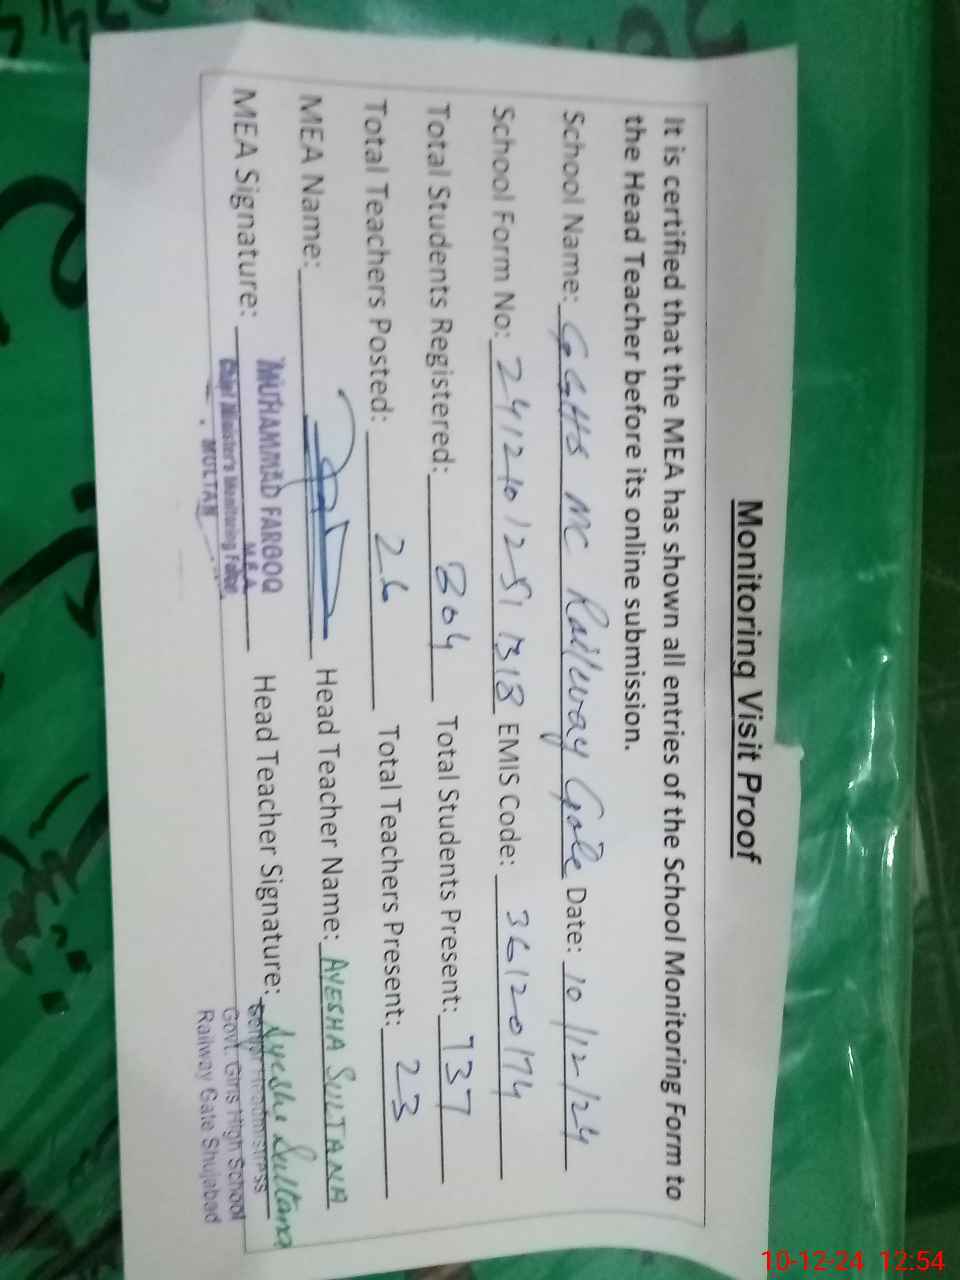 Monitoring Visit Proof
It is certified that the MEA has shown all entries of the School Monitoring Form to
the Head Teacher before its online submission.
School Name: GGHS MC Railway Gate Date: 10/12/24
School Form No: 24121012511318 EMIS Code: 36120174
Total Students Registered: 804 Total Students Present: 737
Total Teachers Posted: 26 Total Teachers Present: 23
MEA Name: Head Teacher Name: AYESHA SULTANA
MEA Signature: Head Teacher Signature: Ayesha Sultana
MUHAMMAD FAROOQ
M.E.A
Chief Minister's Monitoring Force
MULTAN
Senior Headmistress
Govt. Girls High School
Railway Gate Shujabad
10-12-24 12:54